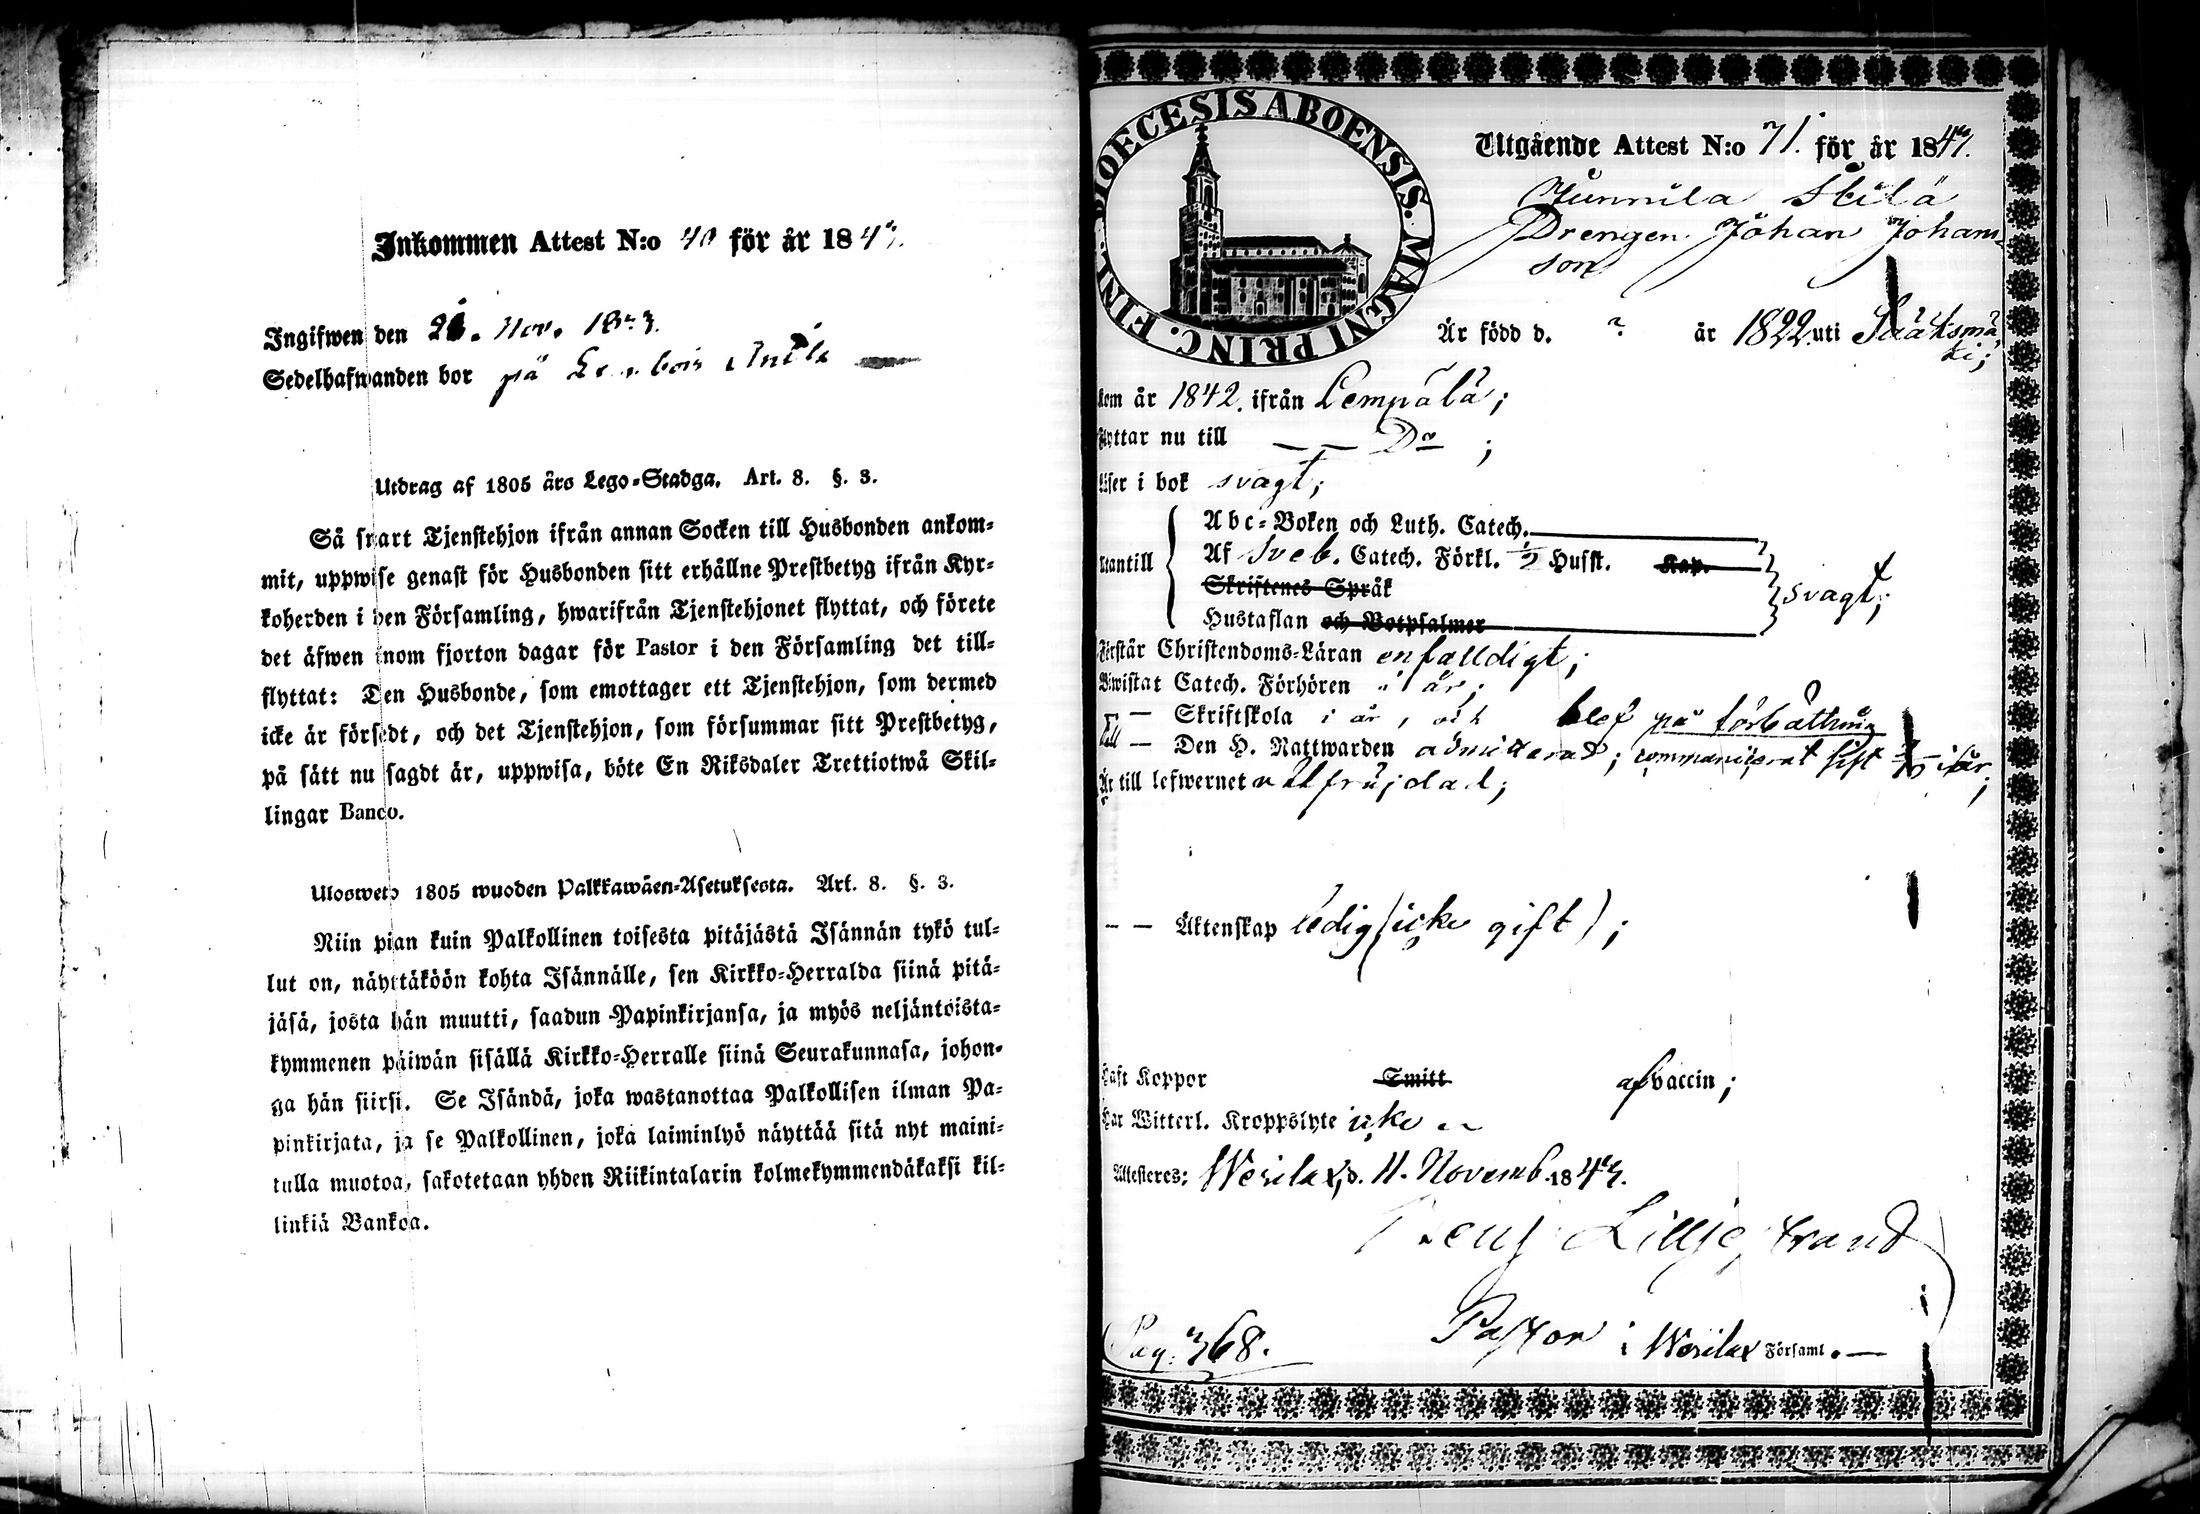 Inkommen Attest N:o 40 för år 1843.
Ingifwen den 26. Nov. 1843.
Sedelhafwanden bor på
Utdrag af 1805 års Lego-Stadga. Art. 8. §. 3.
Så snart Tjenstehjon ifrån annan Socken till Husbonden ankom-
mit, uppwise genast för Husbonden sitt erhållne Prestbetyg ifrån Kyr-
koherden i den Församling, hwarifrån Tjenstehjonet flyttat, och förete
det äfwen inom fjorton dagar för Pastor i den Församling det till-
flyttat: Den Husbonde, som emottager ett Tjenstehjon, som dermed
icke är försedt, och det Tjenstehjon, som försummar sitt Prestbetyg,
på sätt nu sagdt är, uppwisa, böte En Riksdaler Trettiotwå Skil-
lingar Banco.
Ulosweto 1805 wuoden Palkkawäen-Asetuksesta. Art. 8. §. 3.
Niin pian kuin Palkollinen toisesta pitäjästä Isännän tykö tul-
lut on, näyttäköön kohta Isännälle, sen Kirkko-Herralda siinä pitä-
jäsä, josta hän muutti, saadun Papinkirjansa, ja myös neljäntoista-
kymmenen päiwän sisällä Kirkko-Herralle siinä Seurakunnasa, johon-
ga hän siirsi. Se Isändä, joka wastanottaa Palkollisen ilman Pa-
pinkirjata, ja se Palkollinen, joka laiminlyö näyttää sitä nyt maini-
tulla muotoa, sakotetaan yhden Riikintalarin kolmekymmendäkaksi kil-
linkiä Bankoa.
DIOECESIS ABOENSIS. MAGNI PRINC. FINL.
Utgående Attest N:o 71. för år 1843.
Junnila Skilä
Drengen Johan Johans-
son
Är född d. ? år 1822 uti Sääksmä
ki;
kom år 1842. ifrån Lempälä;
Flyttar nu till — — Do ;
Läser i bok svagt;
Utantill
Abc-Boken och Luth. Catech.
Af Sveb. Catech. Förkl. ½ Husst. Kap.
Skriftenes Språk
svagt;
Hustaflan och Botpsalmer
Förstår Christendoms-Läran enfalldigt;
Biwistat Catech. Förhören i år;
— Skriftskola i år, och blef på förbättring
— Den H. Nattwarden admitterad; communicerat sist i år;
Är till lefwernet välfräjdad;
— — Äktenskap ledig (icke gift);
Haft Koppor Smitt af vaccin;
Har Witterl. Kroppslyte icke
Attesteres: Wesilax, d. 11. Novemb. 1843.
Benj Lilljestrand
Pastor i Wesilax Församl. —
Pag: 368.